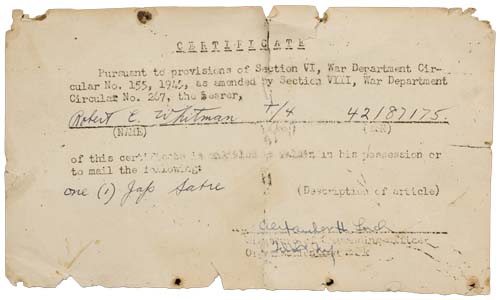 CERTIFICATE
Pursuant to provisions of Section VI, War Department Cir-
cular No. 155, 1945, as amended by Section VIII, War Department
Circular No. 267, the bearer,
Robert E. Whitman T/4 42187175.
(NAME)
of this certificate is in his possession or
to mail the following:
one (1) Jap Sabre
(Description of article)